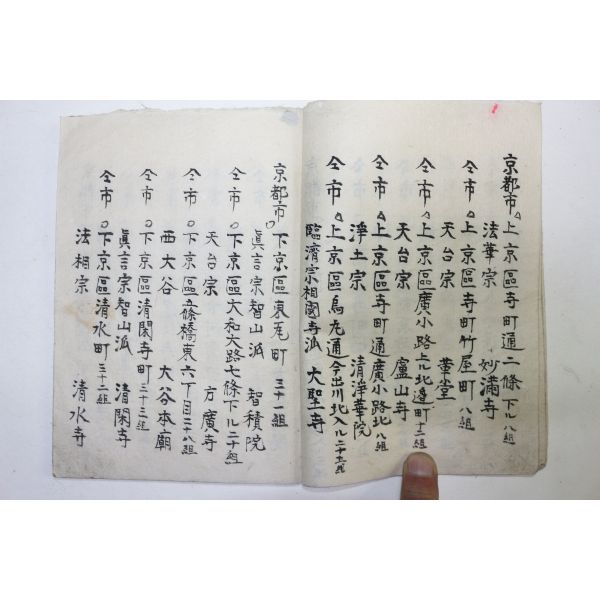 京都市△上京區寺町通二條下ル八組
法華宗 妙滿寺
仝市△上京區寺町竹屋町八組
天台宗 革堂
仝市△上京區廣小路上ル北邊町十二組
天台宗 盧山寺
仝市△上京區寺町通廣小路北八組
浄土宗 清浄華院
仝市△上京區烏丸通今出川北入ル二十五組
臨濟宗相國寺派 大聖寺
京都市〇下京區東瓦町三十一組
眞言宗智山派 智積院
仝市〇下京區大和大路七條下ル二十組
天台宗 方廣寺
仝市〇下京區五條橋東六丁目二十八組
西大谷 大谷本廟
仝市〇下京區清閑寺町三十三組
眞言宗智山派 清閑寺
仝市〇下京區清水町三十二組
法相宗 清水寺